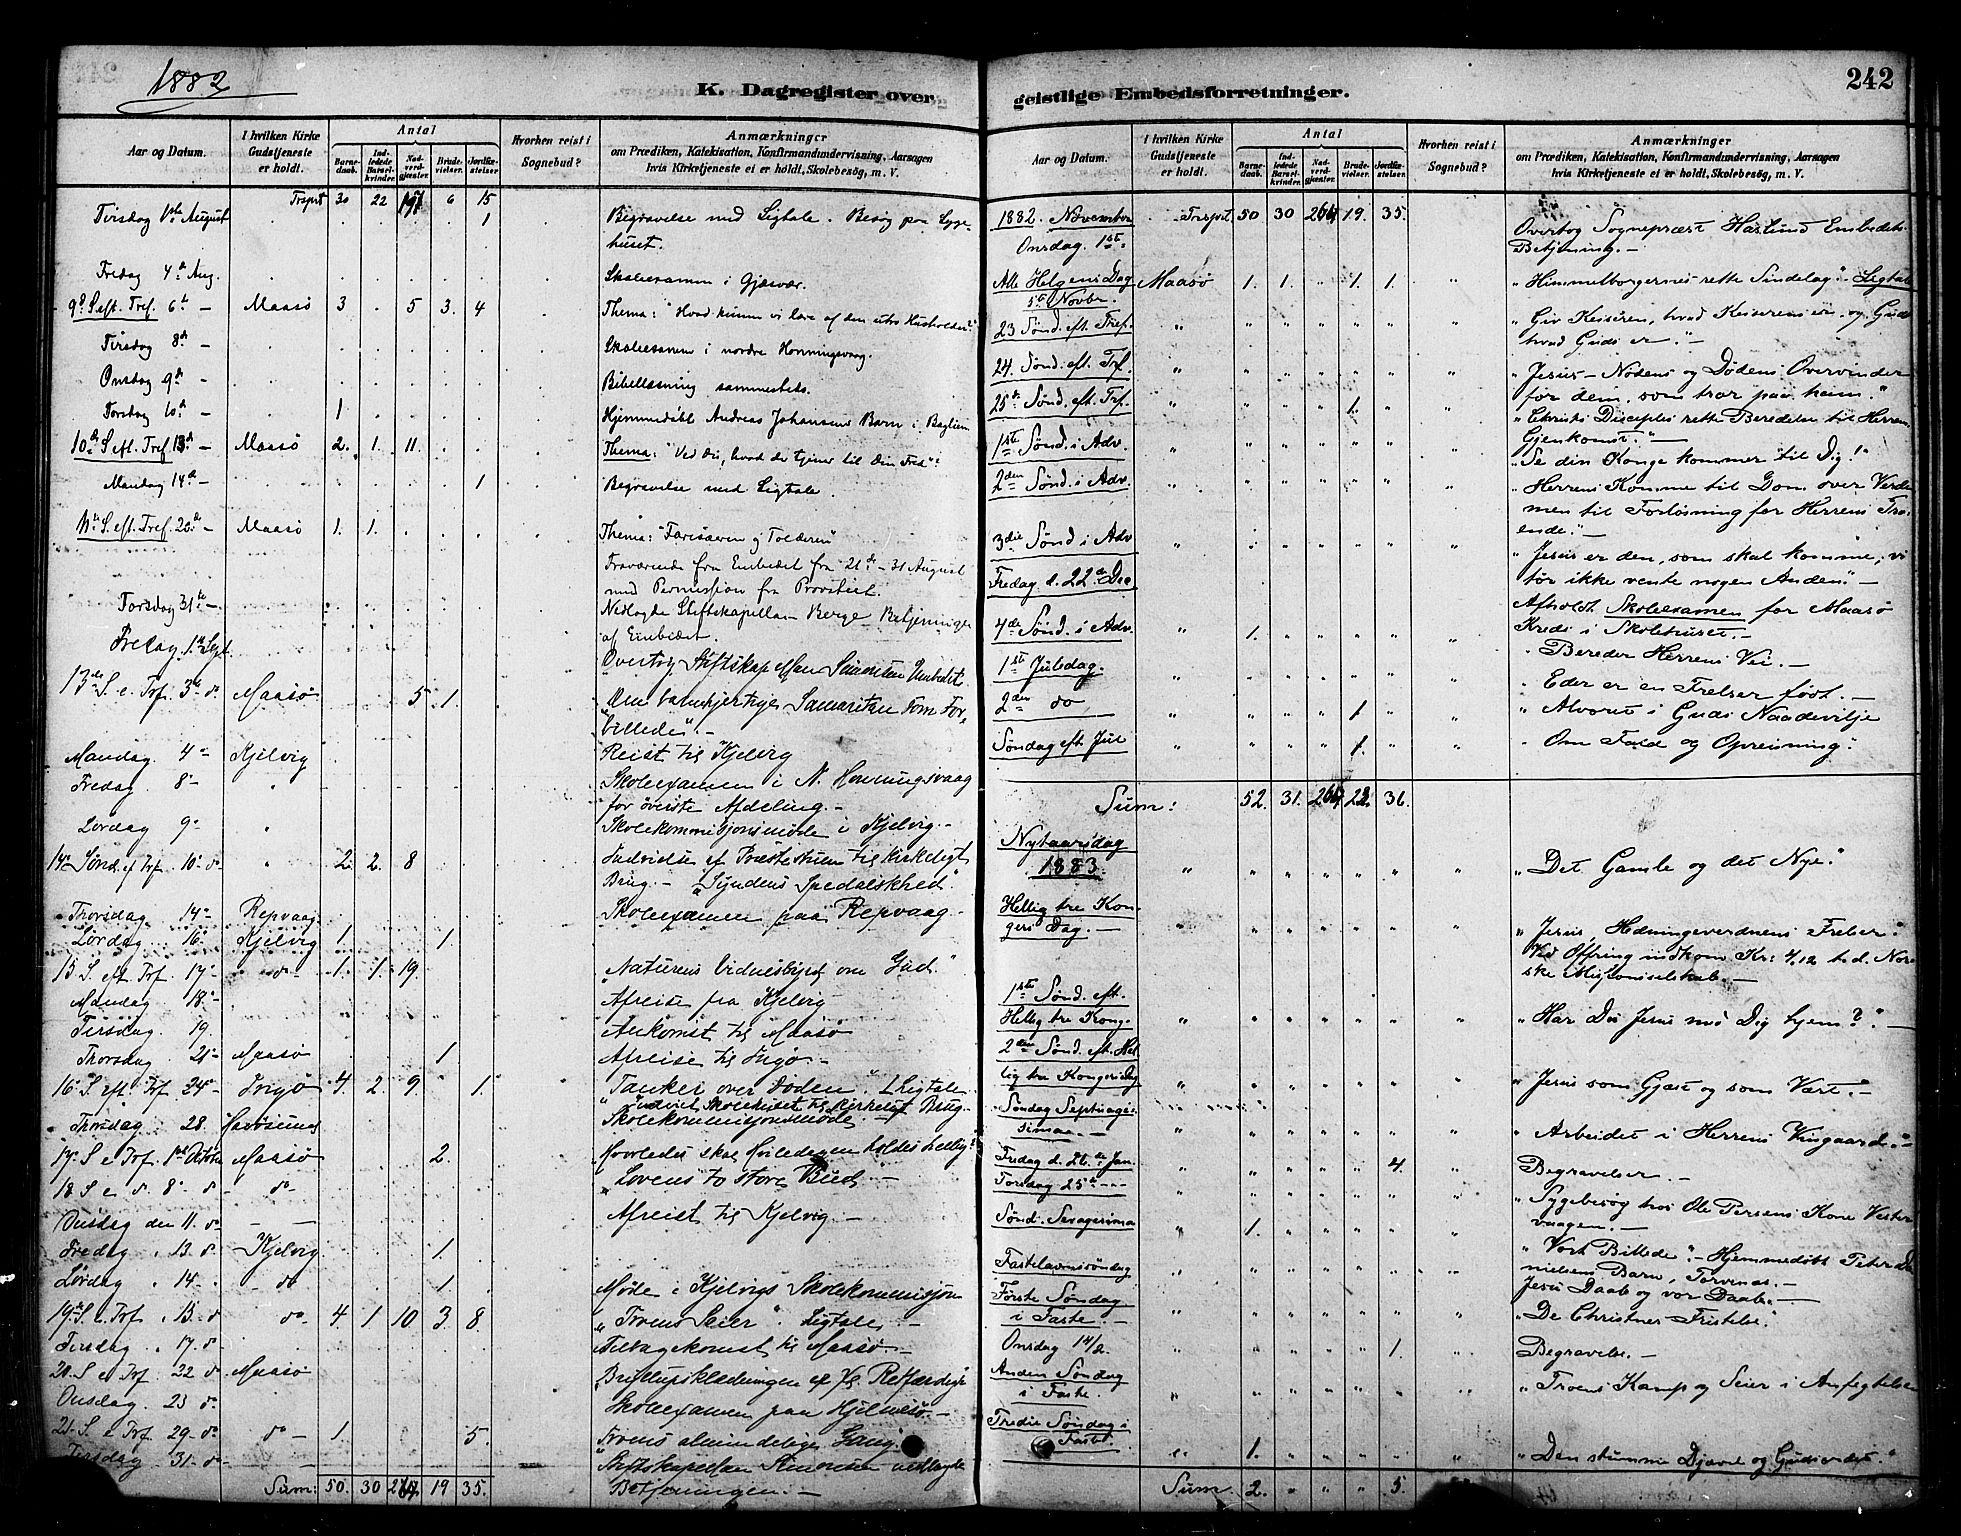 1882
K. Dagregister over
Aar og Datum.
I hvilken Kirke Gudstjeneste er holdt.
Antal
Barnedaab.
Indledede Barselkvinder.
Nadverdgjæster.
Brudevielser.
Jordfæstelser
Hvorhen reist i Sognebud?
Anmærkninger
om Prædiken, Katekisation, Konfirmandundervisning, Aarsagen
hvis Kirketjeneste ei er holdt, Skolebesøg, m. V.
Trspt 30 22 6 15
Tirsdag 1ste August 1 Begravelse med Ligtale. Besøg paa Syge-
huset.
Fredag 4de Aug. Skoleexamen i Gjæsvær.
9de S. eft. Tref. 6te - Maasø 3 5 3. 4 Thema: "Hvad kunne vi lære af den utro Husholder?"
Tirsdag 8de - Skoleexamen i nordre Honningsvaag.
Onsdag 9de - Bibellæsning sammesteds.
Torsdag 10de - 1. Hjemmedøbt Andreas Johansens Barn i
10de S. eft. Tref. 13de - Maasø 2. 1. 11. Thema: "Vidste du, hvad der tjener til Din Fred"!
Mandag 14de - 1 Begravelse med Ligtale.
11te S. eft. Tref. 20de - Maasø 1. 1. Thema: "Farisæeren og Tolderen"
Fraværende fra Embedet fra 21de - 31 August
med Permission fra Provstiet.
Torsdag 31te - Nedlagde Stiftskapellan Berge Betjeningen
af Embedet.
Fredag 1ste Sept. Overtog Stiftskapellan Simonsen Embedet
13de S. e. Trf. 3die do Maasø 5 1. "Den barmhjertige Samaritan som For-
billede". -
Mandag 4de - Kjelvig Reist til Kjelvig
Fredag 8de - " Skoleexamen i N. Honningsvaag
for øverste Afdeling. -
Lørdag 9de " Skolekommissionsmøde i Kjelvig. -
14de Sønd. ef Trf. 10de do " 2. 2. 8 Indvielse af Præstestuen til kirkeligt
Brug. - "Syndens Spedalskhed".
Thorsdag 14de - Repvaag Skoleexamen paa Repvaag. -
Lørdag 16de Kjelvig 1. 1.
15 S. eft Trf. 17de - do - 1. 1. 19. "Naturens Vidnesbyrd om Gud."
Mandag 18de - Afreise fra Kjelvig
Tirsdag 19. Ankomst til Maasø
Thorsdag 21de - Maasø 1 Afreise til Ingø -
16de S. eft. Trf. 24de - Ingø 4. 2 9. 1. "Tanker over Døden." Ligtale
"Indviet Skolehuset til kirkeligt Brug. -
Thorsdag 28. Havøsund Skolekommissionsmøde. -
17de S. e Trf. 1ste October Maasø 2. "Hvorledes skal Hviledagen holdes hellig?
18 S. e. do. 8de do do - "Lovens to store Bud. -
Onsdag den 11. do - - Afreist til Kjelvig. -
Fredag " 13. do - Kjelvig. 1.
Lørdag " 14 - " - do 1. Møde i Kjelvigs Skolekommission
19de S. e. Trf " 15. do do 4 1 10 3 8. "Troens Seier". Ligtale. -
Tirsdag " 17. do Tilbagekomst til Maasø -
20. S e Trf. 22 do Maasø "Bryllupsklædningen er Retfærdigh
Onsdag. 25 do Skoleexamen paa Hjelmesø. -
21. S. e Trf. 29 do do - 1. 5. Troens almindelige Gang
Tirsdag 31. do "Stiftskapellan Simonsen nedlagde
Sum: 50. 30 264 19 35. Betjeningen. -
geistlige Embedsforretninger.
242
Aar og Datum.
I hvilken Kirke Gudstjeneste er holdt.
Antal
Barnedaab.
Indledede Barselkvinder.
Nadverdgjæster.
Brudevielser.
Jordfæstelser.
Hvorhen reist i Sognebud?
Anmærkninger
om Prædiken, Katekisation, Konfirmandundervisning, Aarsagen
hvis Kirketjeneste ei er holdt, Skolebesøg, m. V.
1882. November Trspt. 50 30 264 19. 35. Overtog Sognepræst Haslund Embedets
Onsdag. 1ste Betjening. -
Alle Helgens Dag Maasø 1. 1. " 1. 1 " "Himmelborgernes rette Sindelag". - Ligtale
5te Novbr.
23 Sønd. eft. Tref. " "Giv Keiseren, hvad Keiserens er, og Gud,
hvad Guds er". -
24. Sønd. eft. Trf. " "Jesus - Nødens og Dødens Overvinder
for dem, som tror paa ham."
25de Sønd. eft. Trf. " 1. "Christi Disciples rette Beredelse til Herrens
Gjenkomst." -
1ste Sønd. i Adv. " "Se din Konge kommer til Dig!"
2den Sønd. i Adv. " "Herrens Komme til Dom over Verde
men til Forløsning for Herrens Tro-
ende". -
3die Sønd i Adv " "Jesus er den, som skal komme, vi
tør ikke vente nogen Anden". -
Fredag d. 22de Dec Afholdt Skoleexamen for Maasø
Kreds i Skolehuset. -
4de Sønd. i Adv. " 1. "Bereder Herrens Vei. -
1ste Juledag. " "Eder er en Frelser født. -
2den do " 1 "Alvoret i Guds Naadevilje
Søndag eft. Jul " 1. "Om Fald og Opreisning".
Sum: 52. 31. 264 22. 36.
Nytaarsdag
1883. " "Det Gamle og det Nye".
Hellig tre Kon-
gers Dag. - " "Jesus, Hedningeverdnens Frelser".
Ved Offring indkom Kr: 4,12 til d. Nor-
ske Missionsselskab. -
1ste Sønd. eft.
Hellig tre Kong. " "Har Du Jesus med Dig hjem?". -
2den Sønd. eft. Hel
lig tre Kongers Dag " "Jesus som Gjæst og som Vært". -
Søndag Septuage-
sima. - " "Arbeidet i Herrens Vingaard. "-
Fredag d. 26de Jan. 4. Begravelser. -
Torsdag 25de - - - "Sygebesøg hos Ole Persens Kone Vester
vaagen. -
Sønd. Sexagesima " 1. "Vort Billede". - Hjemmedøbt Peter Da
nielsens Barn, Torvenæs. -
Fastelavnssøndag Jesu Daab og vor Daab. -
Første Søndag
i Faste - " "De Christnes Fristelse".
Onsdag 14/2. 1. Begravelse. -
Anden Søndag
i Faste. " "Troens Kamp og Seier i Anfægtelsen
Tredie Søndag i
Faste " 1. "Den stumme Djævel og Guds ordet."
Sum 2. " " " 5.